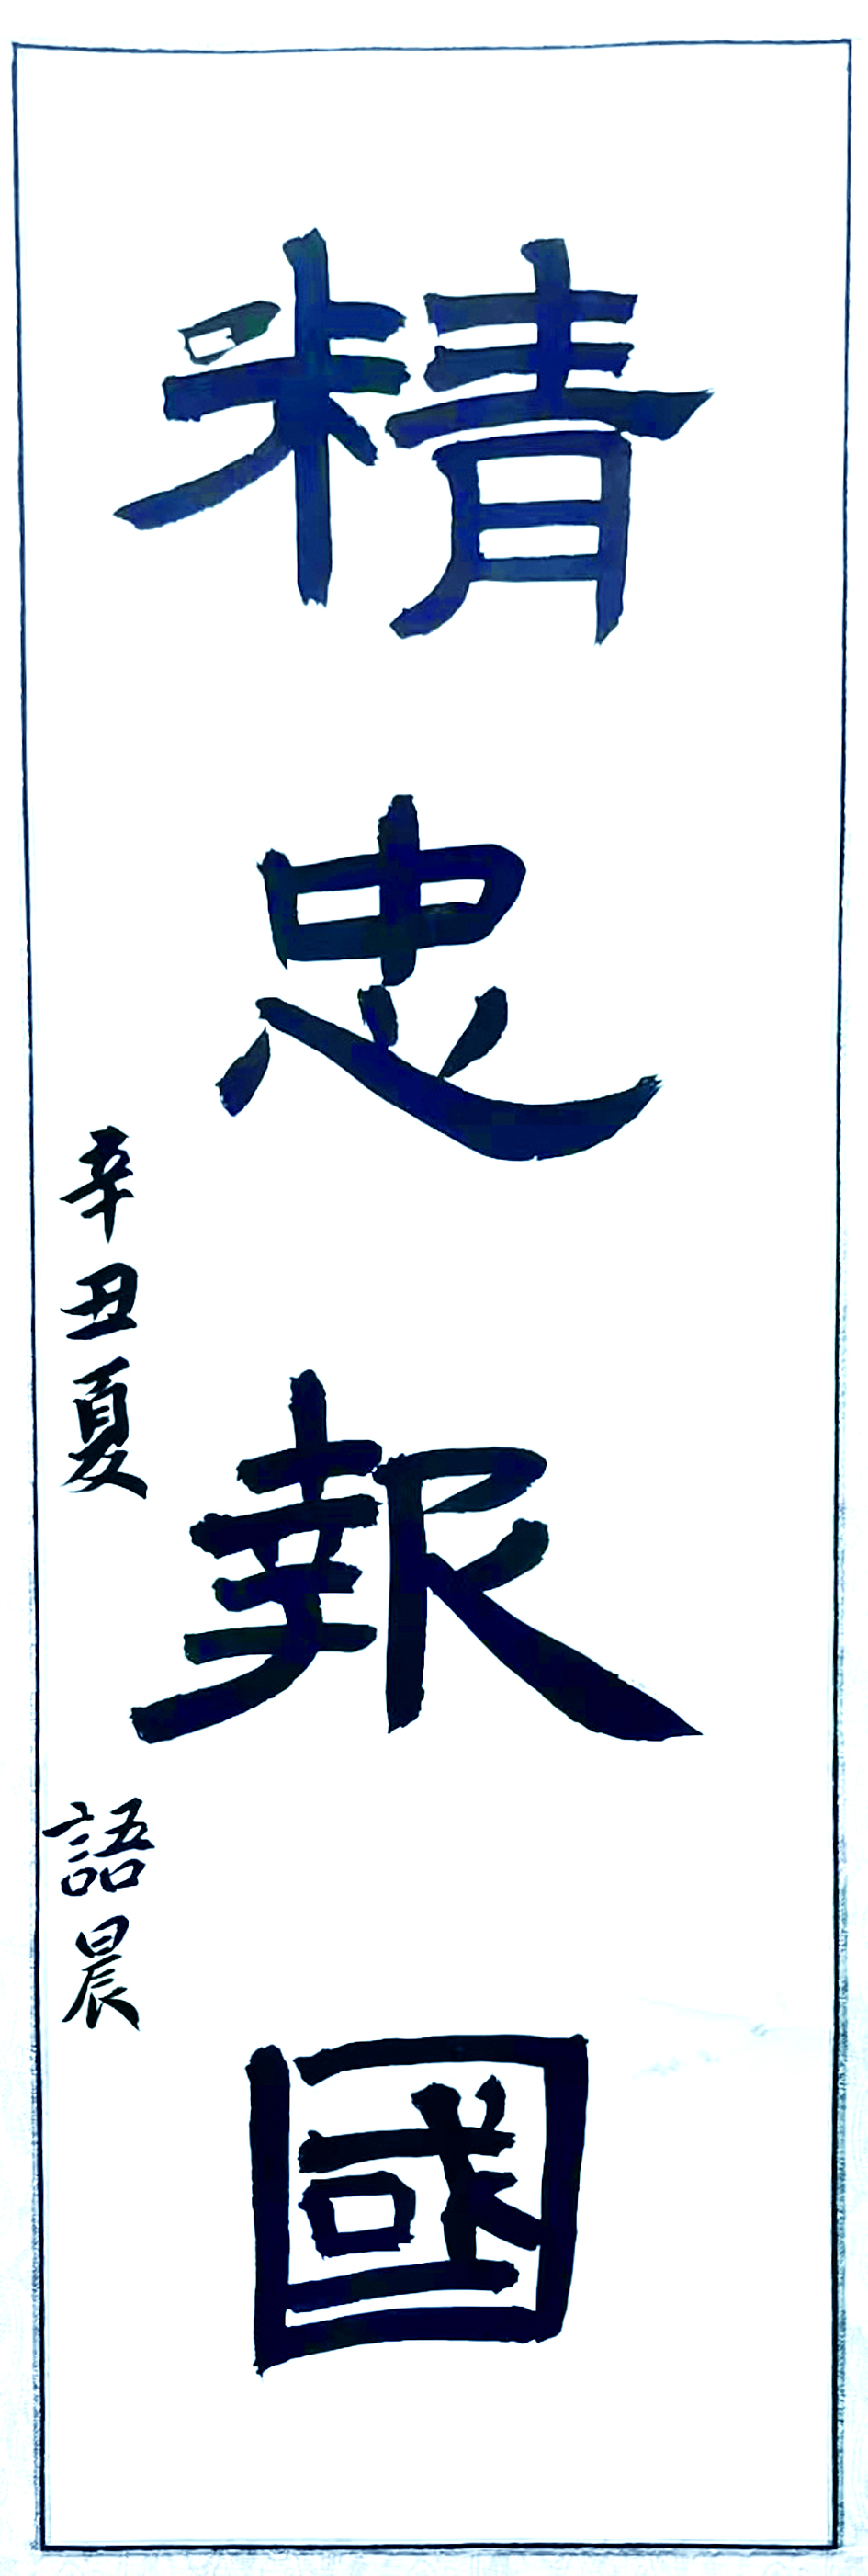 精忠報國
辛丑夏 語晨